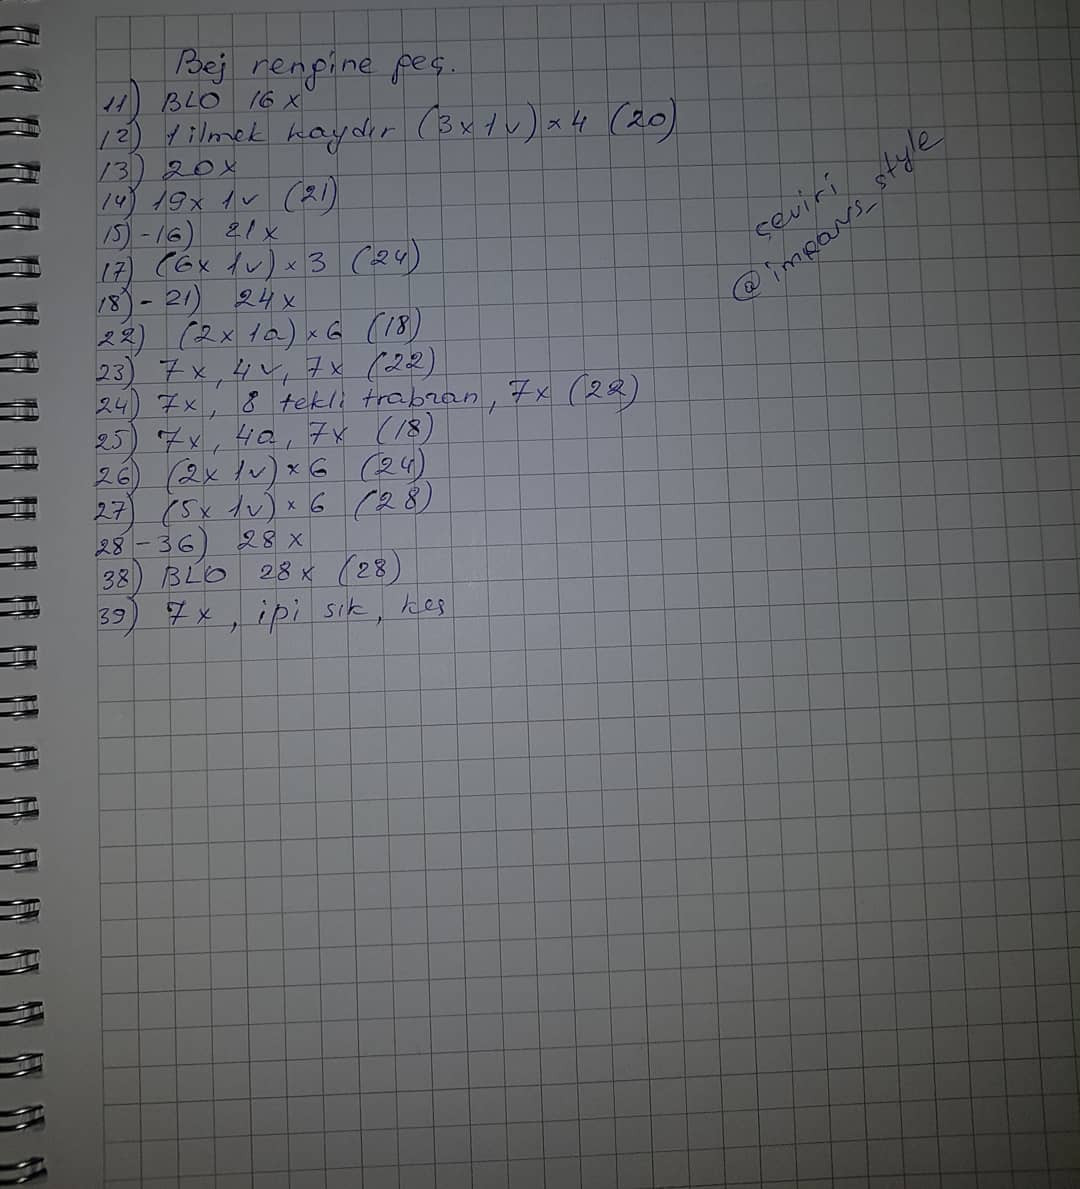 Bej rengine geç.
11) BLO 16 x
12) 1 ilmek kaydır (3x 1v) x 4 (20)
13) 20x
14) 19x 1v (21)
15)-16) 21x
17) (6x 1v) x 3 (24)
18)-21) 24x
22) (2x 1a) x 6 (18)
23) 7x, 4v, 7x (22)
24) 7x, 8 tekli trabzan, 7x (22)
25) 7x, 4a, 7x (18)
26) (2x 1v) x 6 (24)
27) (5x 1v) x 6 (28)
28-36) 28 x
38) BLO 28x (28)
39) 7x, ipi sık, kes
çeviri